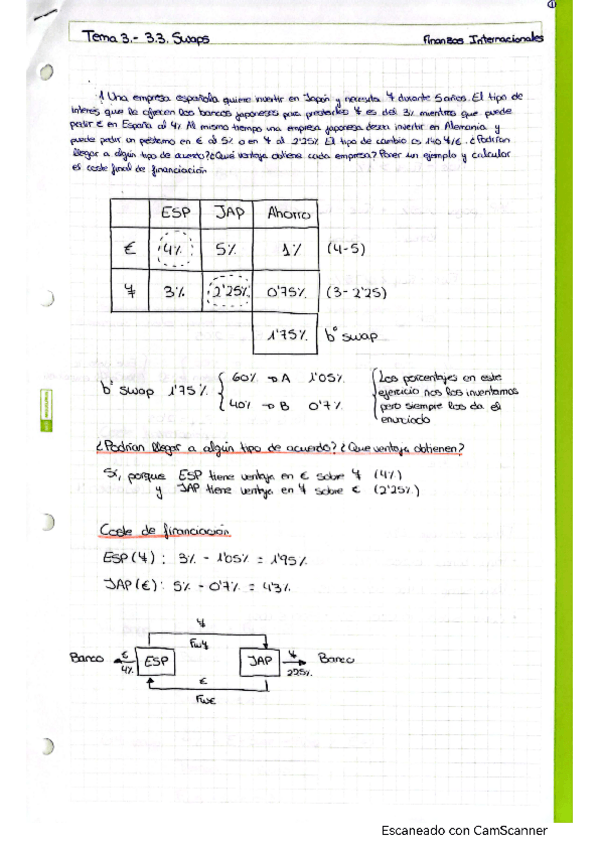 Tema 3.- 3.3. Swaps
Finanzas Internacionales
1. Una empresa española quiere invertir en Japón y necesita ¥ durante 5 años. El tipo de
interés que le ofrecen los bancos japoneses para prestarles ¥ es del 3% mientras que puede
pedir € en España al 4%. Al mismo tiempo una empresa japonesa desea invertir en Alemania y
puede pedir un préstamo en € al 5% o en ¥ al 2'25%. El tipo de cambio es 140 ¥/€. ¿Podrían
llegar a algún tipo de acuerdo? ¿Qué ventaja obtiene cada empresa? Poner un ejemplo y calcular
el coste final de financiación
ESP JAP Ahorro
€ 4% 5% 1% (4-5)
¥ 3% 2'25% 0'75% (3-2'25)
1'75% bº swap
bº swap 1'75%
60% → A 1'05%
40% → B 0'7%
Los porcentajes en este
ejercicio nos los inventamos
pero siempre los da el
enunciado
¿Podrían llegar a algún tipo de acuerdo? ¿Que ventaja obtienen?
Sí, porque ESP tiene ventaja en € sobre ¥ (4%)
y JAP tiene ventaja en ¥ sobre € (2'25%)
Coste de financiación
ESP (¥) : 3% - 1'05% = 1'95%
JAP (€) : 5% - 0'7% = 4'3%
¥
Fw¥
Banco € 4% ESP JAP ¥ 2'25% Banco
€
Fw€
Escaneado con CamScanner